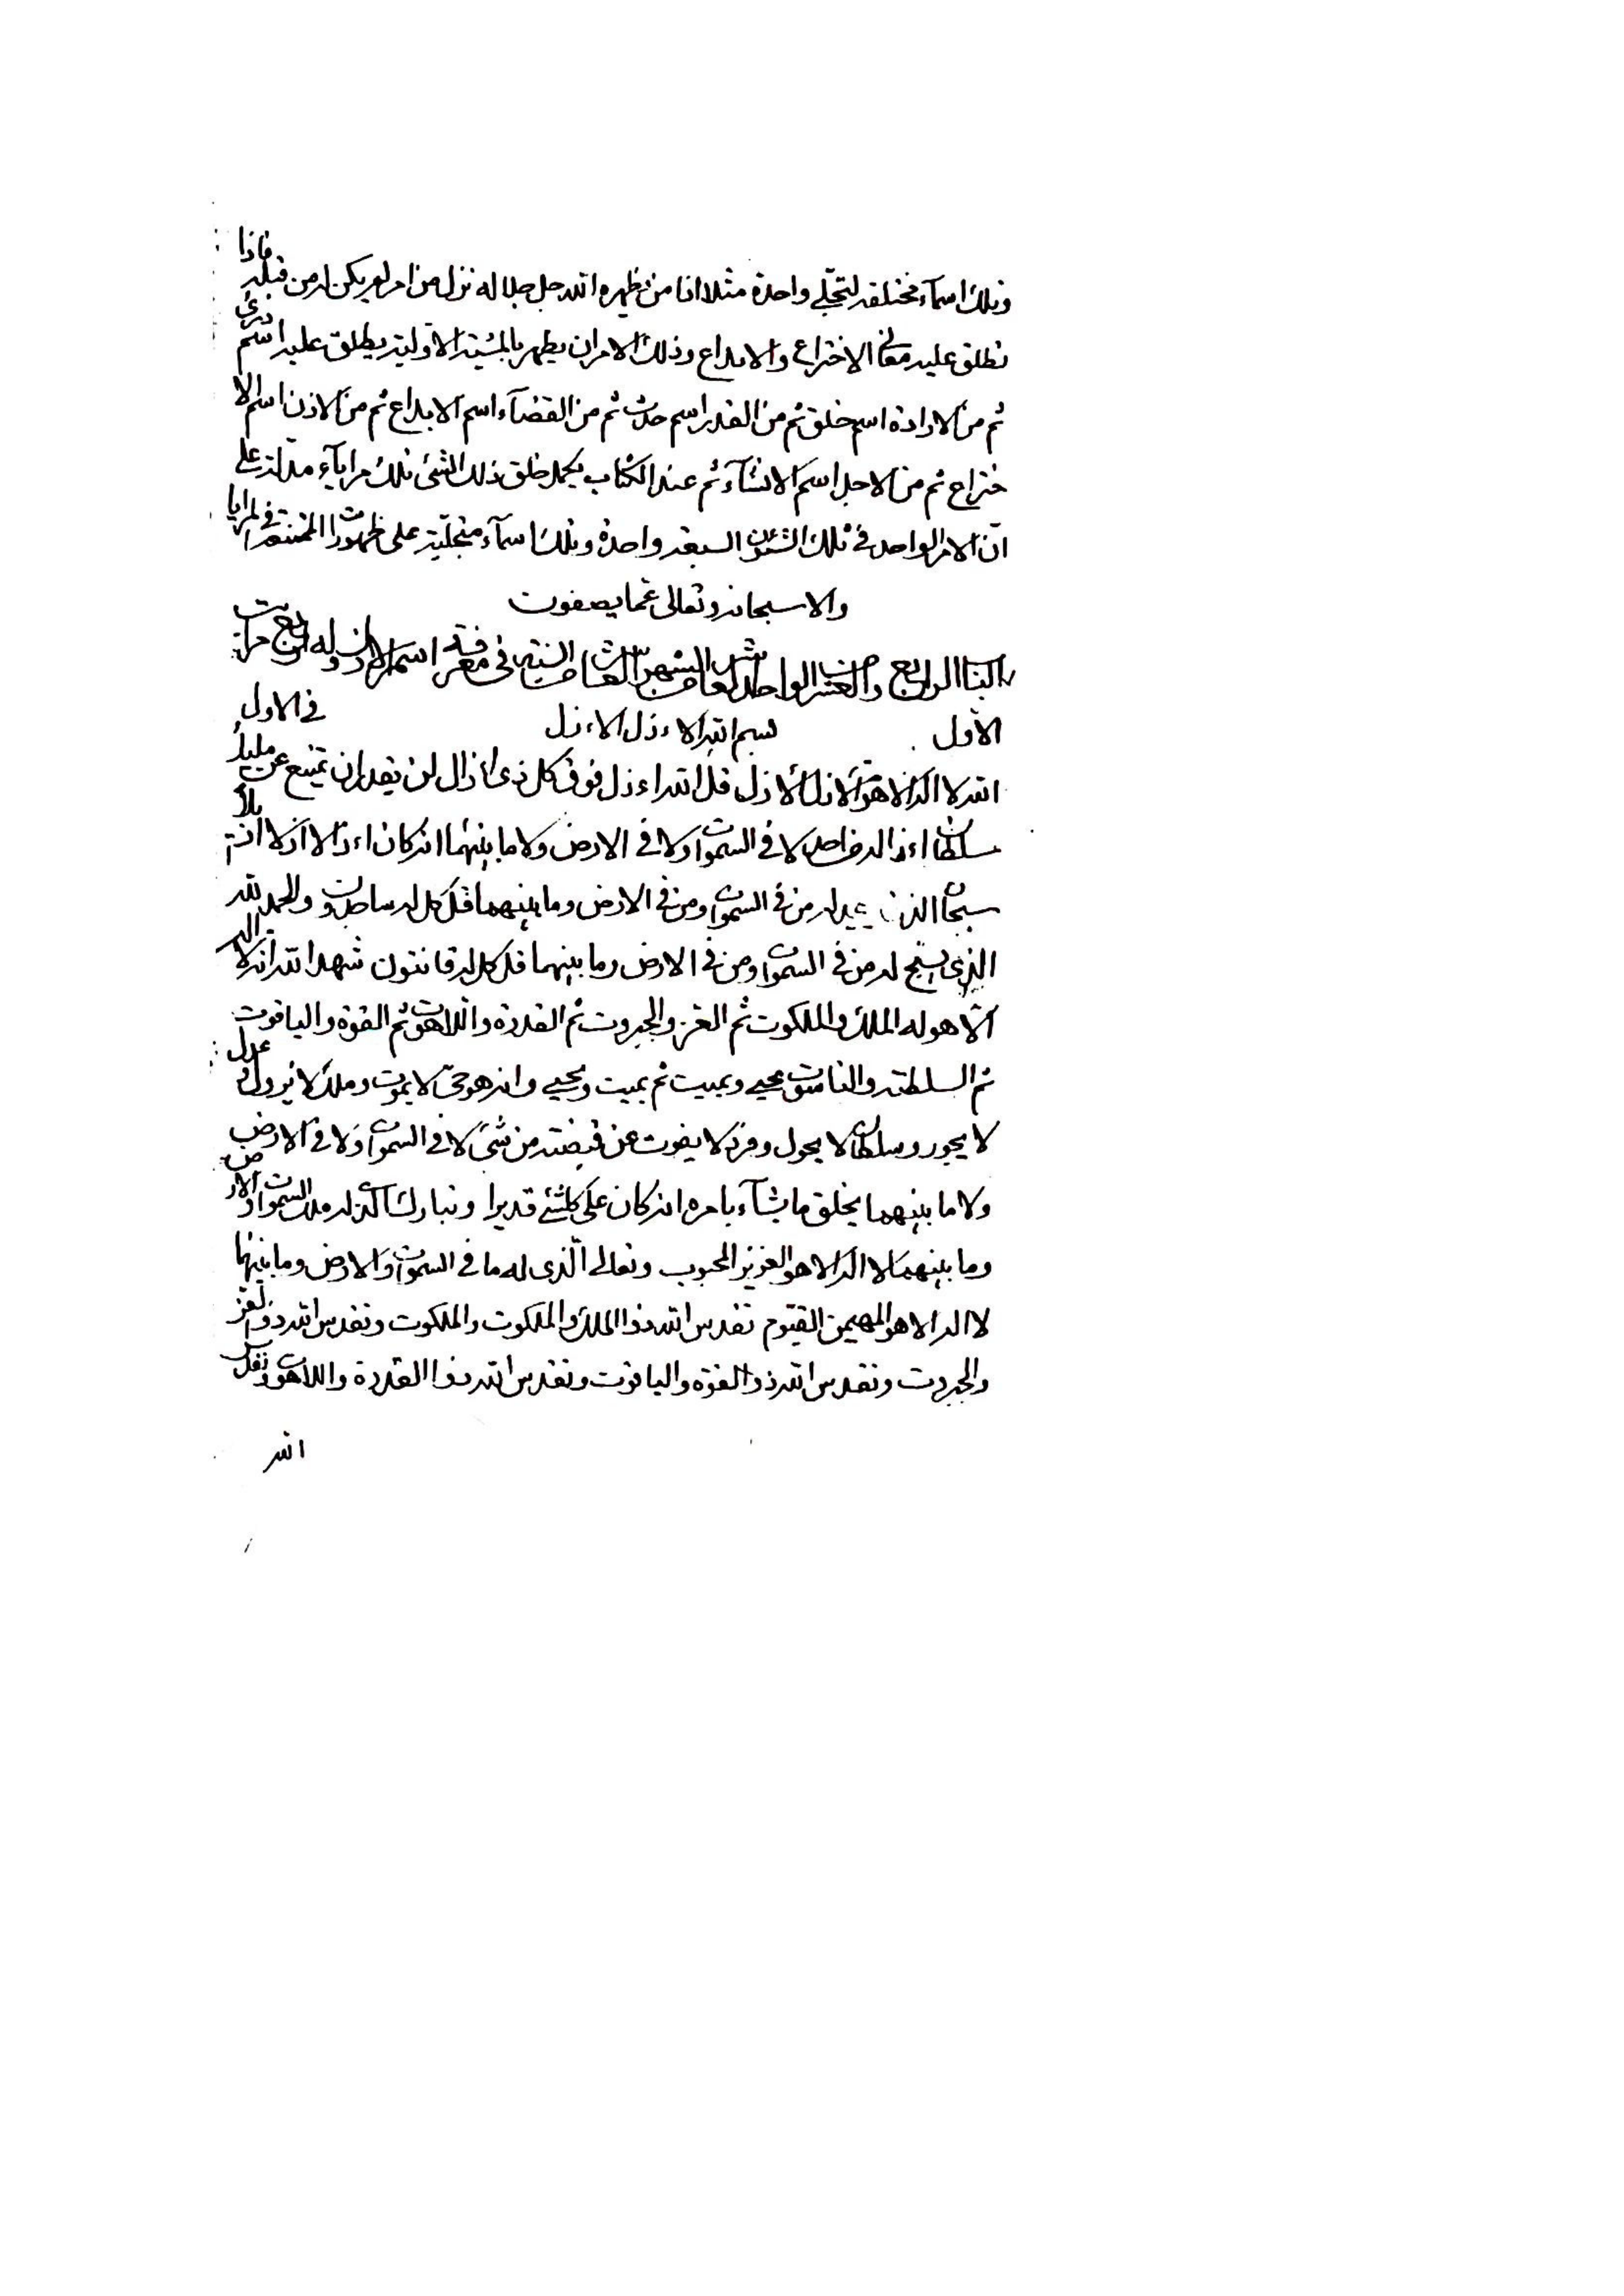 وتلك اسمآء مختلفه لتجلّي واحدة مثلا اذا من يظهره الله جل جلاله نزل من امر لم يكن له من قبله فاذا
تطلق عليه معانى الاختراع والابداع وذلك الامر ان يظهر بالمشية الاولية يطلق عليه اسم ذرئ
ثم من الارادة اسم خلق ثم من القدر اسم حدث ثم من القضآء اسم الابداع ثم من الاذن اسم الا
ختراع ثم من الاجل اسم الانشآء ثم عند الكتاب يكمل خلق ذلك الشئ تلك مرايآء مدلة على
ان الامر الواحد في تلك الشئون السبعة واحدة وتلك اسمآء متجلّية على ظهورات الممتنعة في المرايا
والا سبحانه وتعالى عما يصفون
الباب الرابع والعشر من الواحد العاشر من الشهر الثالث من السنة في معرفة اسم الازل وله اربع مراتب
الاول في الاول
بسم الله الاءزل الاءزل
الله لا اله الا هو الاءزل الاءزل قل الله اءزل فوق كل ذى ازال لن يقدر ان يمتنع عن مليك
سلطان اءزاله من احد لا في السموات ولا في الارض ولا ما بينهما انه كان اءزالا ازلا
سبحان الذي يسجد له من في السموات ومن في الارض وما بينهما قل كل له ساجدون والحمد لله
الذى يسبح له من في السموات ومن في الارض وما بينهما قل كل له قانتون شهد الله انه لا اله
الا هو له الملك والملكوت ثم العز والجبروت ثم القدرة واللاهوت ثم القوة والياقوت
ثم السلطنة والناسوت يحيي ويميت ثم يميت ويحيي وانه هو حيّ لا يموت وملك لا يزول وعدل
لا يجور وسلطان لا يحول وفرد لا يفوت عن قبضته من شئ لا في السموات ولا في الارض
ولا ما بينهما يخلق ما يشآء بامره انه كان على كلشئ قديرا وتبارك الذى له ملك السموات والارض
وما بينهما لا اله الا هو العزيز المحبوب وتعالى الّذى له ما في السموات والارض وما بينهما
لا اله الا هو المهيمن القيّوم تقدس الله ذو الملك والملكوت والملكوت وتقدس الله ذو العز
والجبروت وتقدس الله ذو القوة والياقوت وتقدس الله ذو القدرة واللاهوت وتقدس
الله